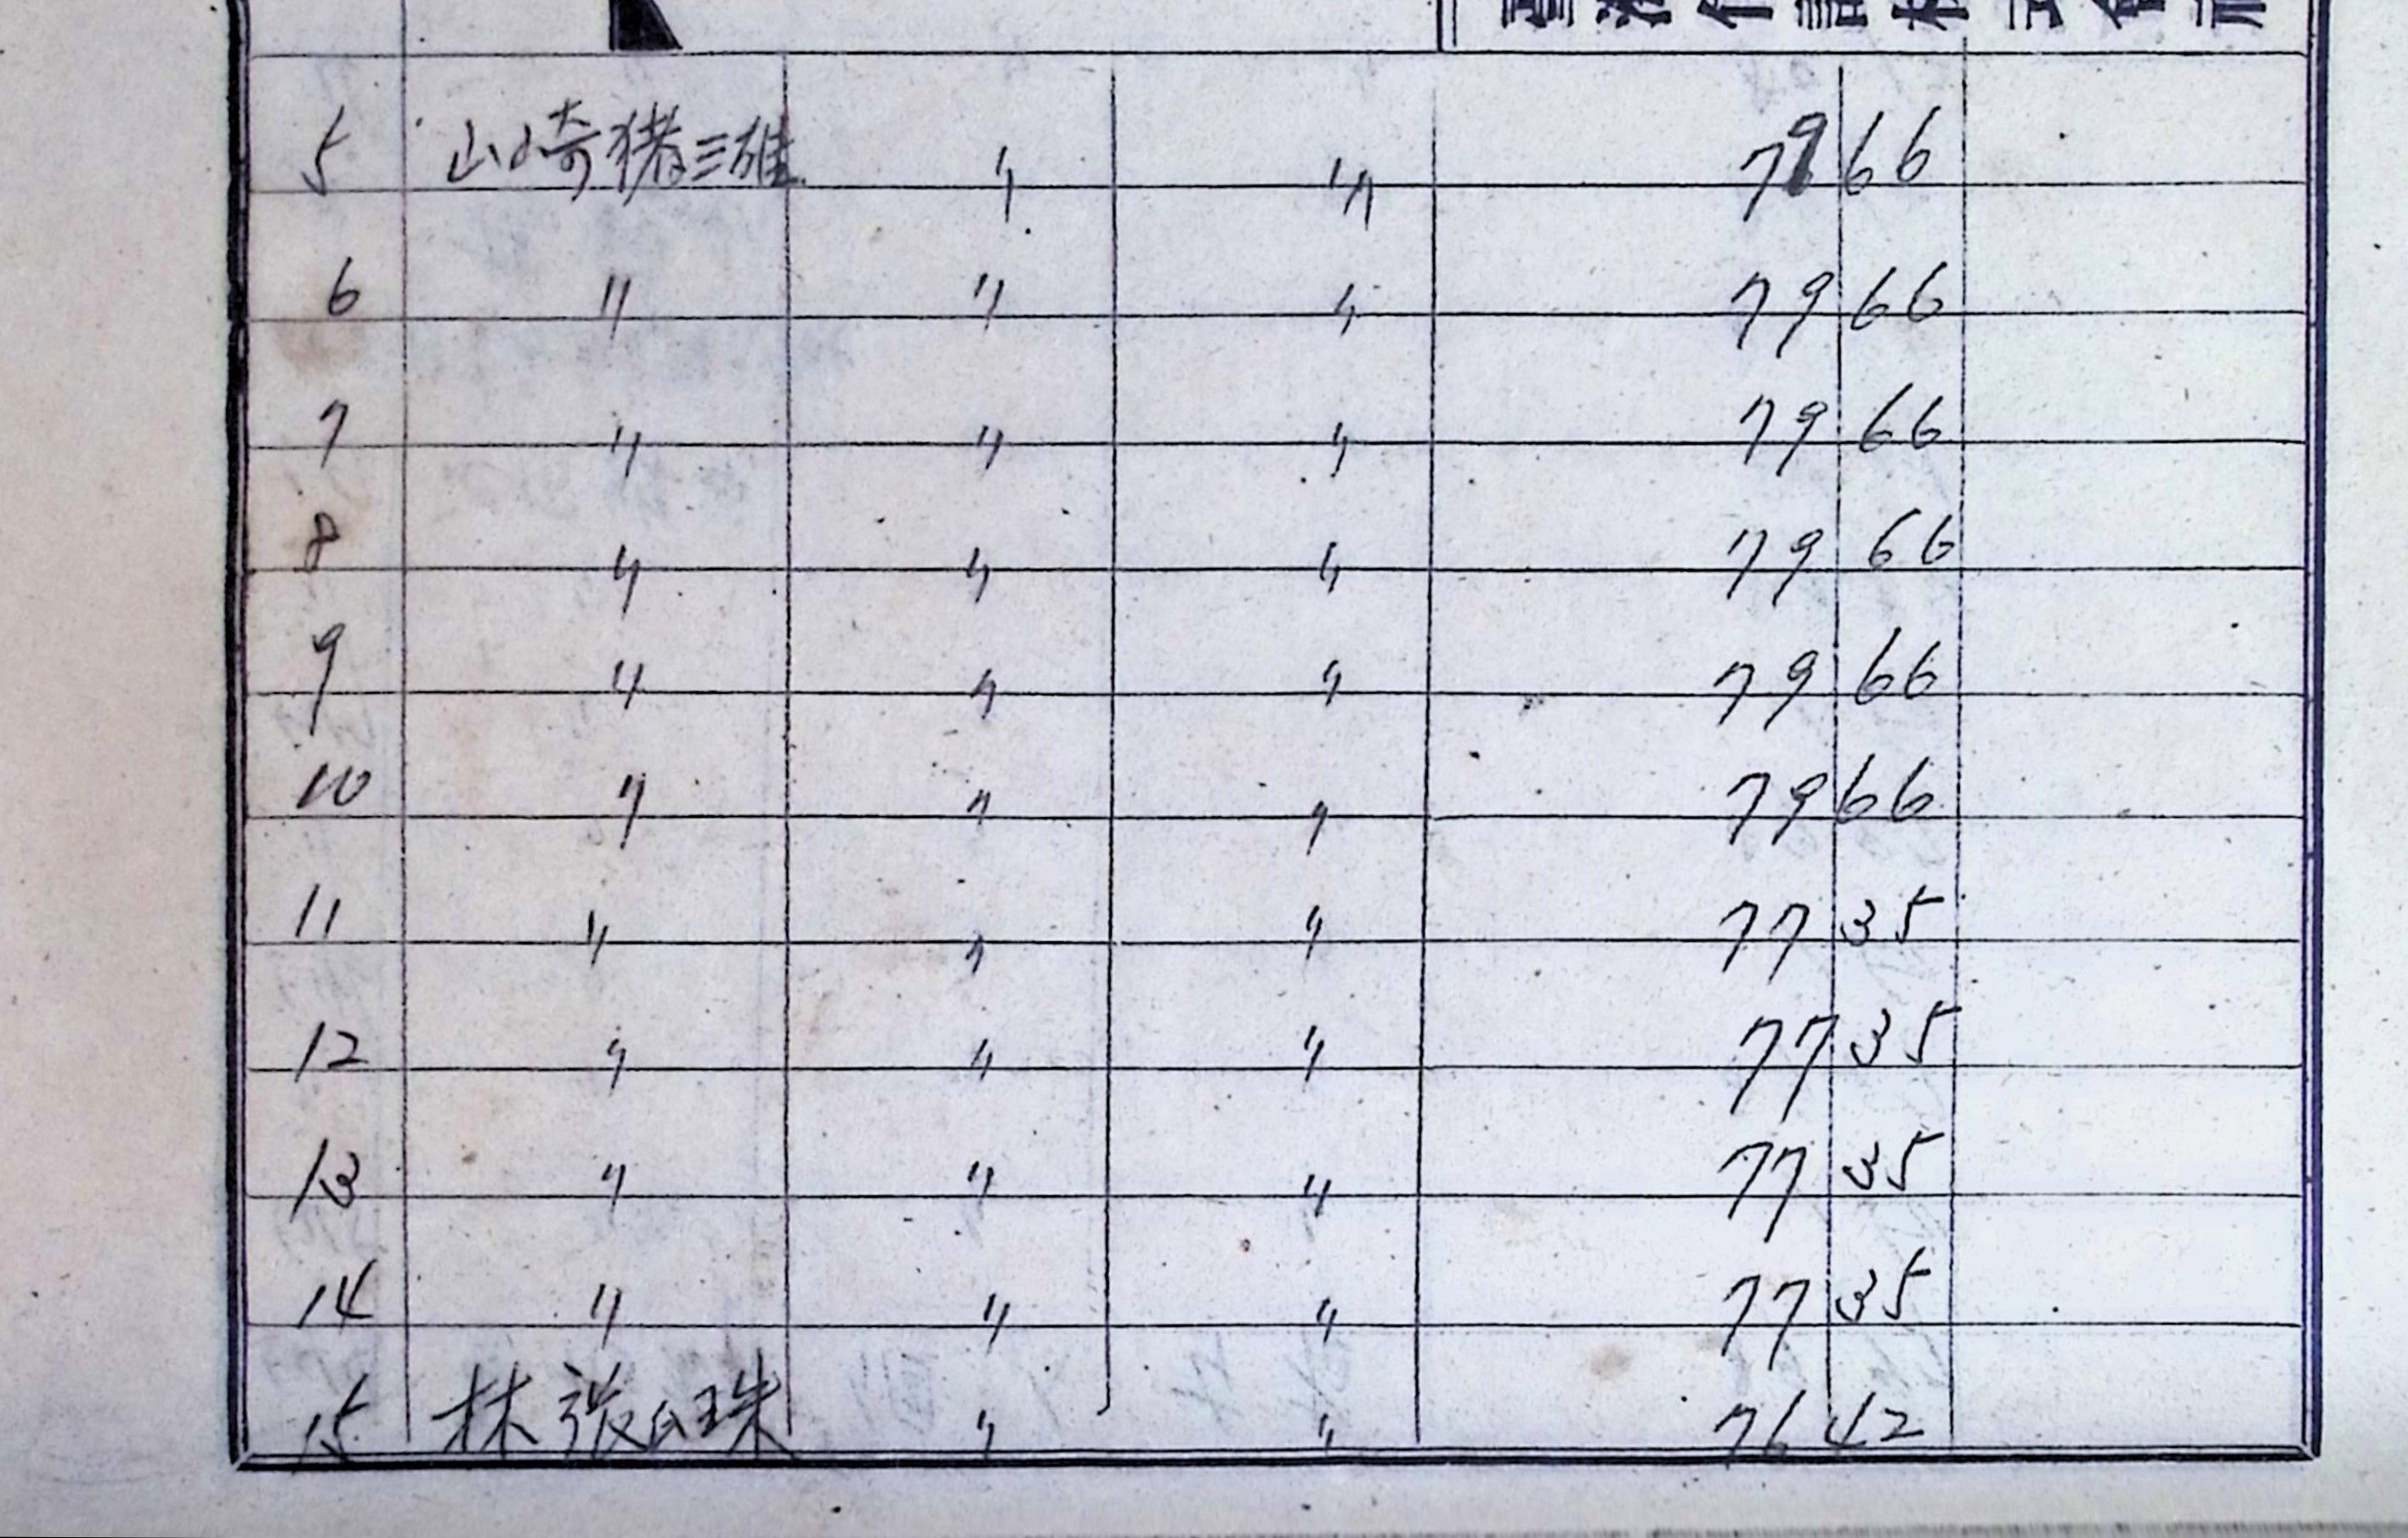 5 山崎猪三雄 〃 〃 79 66
6 〃 〃 〃 79 66
7 〃 〃 〃 79 66
8 〃 〃 〃 79 66
9 〃 〃 〃 79 66
10 〃 〃 〃 79 66
11 〃 〃 〃 77 35
12 〃 〃 〃 77 35
13 〃 〃 〃 77 35
14 〃 〃 〃 77 35
15 林張氏珠 〃 〃 76 42